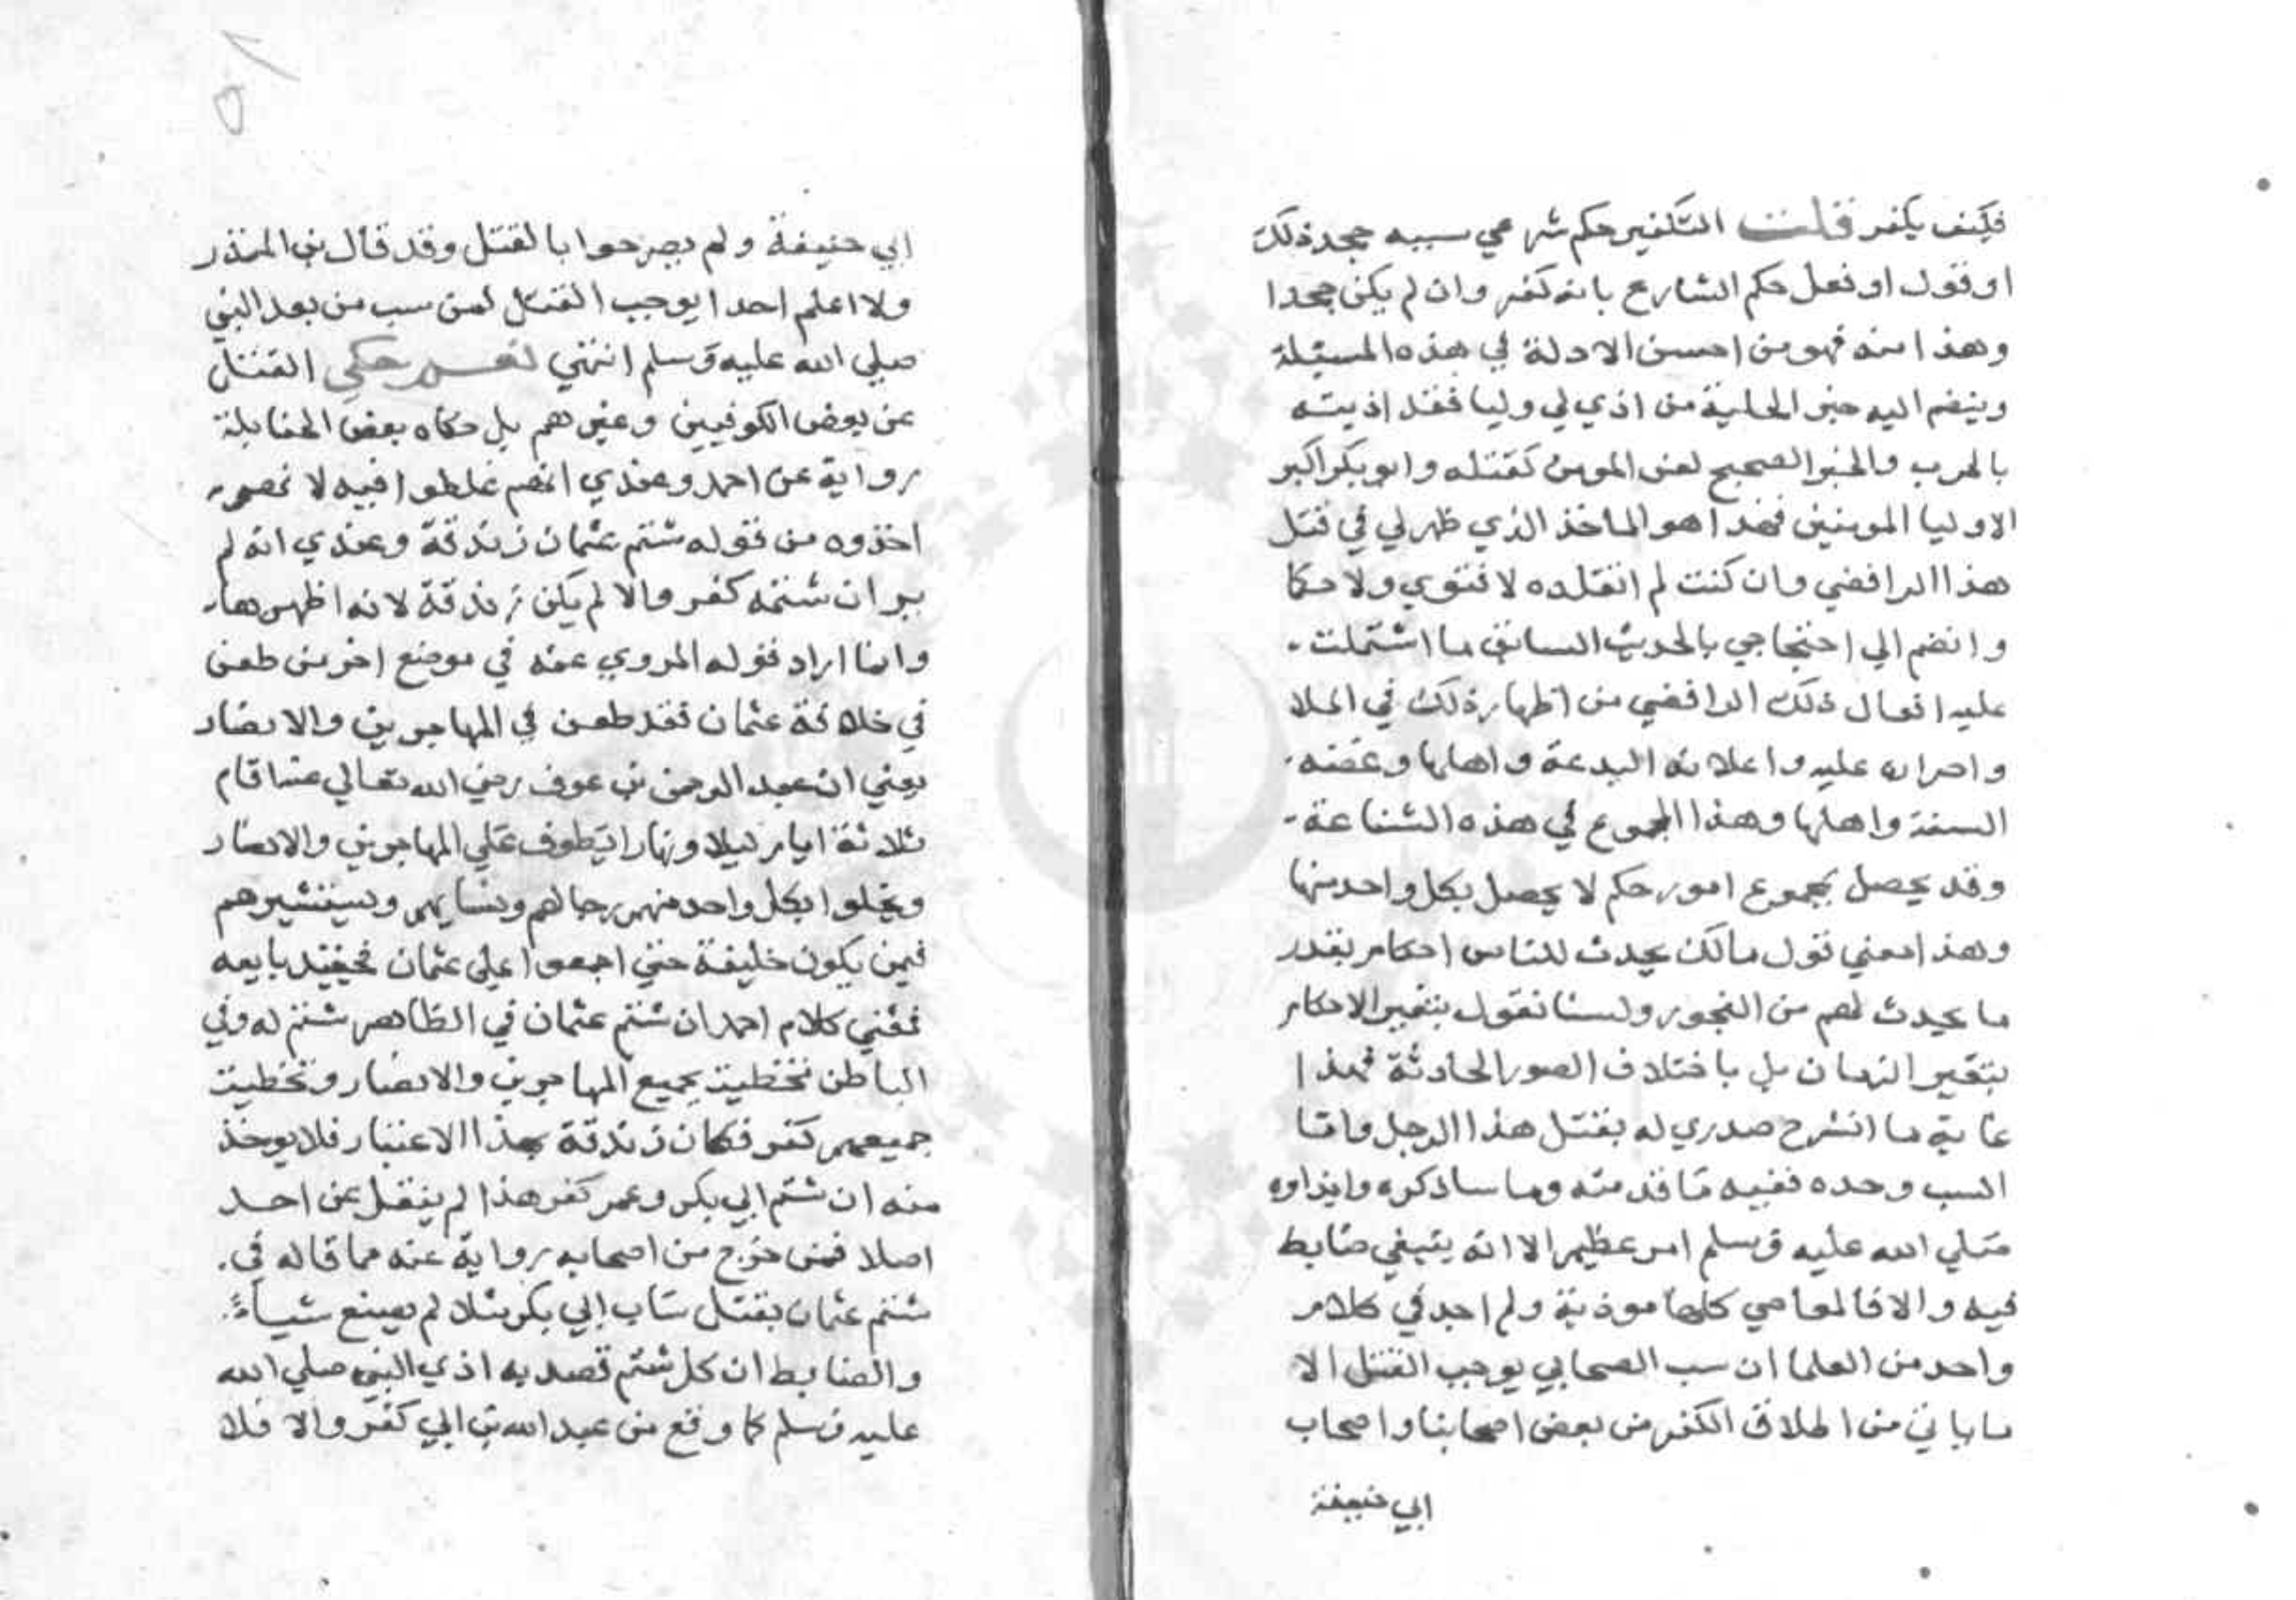 فكيف يكفر قلت التكفير حكم شرعي سببه جحد ذلك
او قول او فعل حكم الشارع بانه كفر وان لم يكن جحدا
وهذا منه فهو من احسن الادلة في هذه المسئلة
وينضم اليه خبر الحلية من اذي لي وليا فقد اذيته
بالحرب والخبر الصحيح لعن المومن كقتله وابو بكر اكبر
الاوليا المومنين فهذا هو الماخذ الذي ظهر لي في قتل
هذا الرافضي وان كنت لم اتقلده لا فتوي ولا حكما
وانضم الي احتجاجي بالحديث السابق ما اشتملت
عليه افعال ذلك الرافضي من اظهار ذلك في الملا
واصراره عليه واعلانه البدعة واهلها وغضه
السنة واهلها وهذا المجموع في هذه الشناعة
وقد يحصل بمجموع امور حكم لا يحصل بكل واحد منها
وهذا معني قول مالك يحدث للناس احكام بقدر
ما يحدث لهم من الفجور ولسنا نقول بتغير الاحكام
بتغير الزمان بل باختلاف الصور الحادثة فهذا
غاية ما انشرح صدري له بقتل هذا الرجل واما
السب وحده ففيه ما قدمته وما ساذكره وايذاوه
صلي الله عليه وسلم امر عظيم الا انه ينبغي ضابط
فيه والا فالمعاصي كلها موذية ولم اجد في كلام
واحد من العلما ان سب الصحابي يوجب القتل الا
ما ياتي من اطلاق الكفر من بعض اصحابنا واصحاب
ابي حنيفة
ابي حنيفة ولم يصرحوا بالقتل وقد قال بن المنذر
ولا اعلم احدا يوجب القتل لمن سب من بعد النبي
صلي الله عليه وسلم انتهي نعم حكي القتل
عن بعض الكوفيين وغيرهم بل حكاه بعض الحنابلة
رواية عن احمد وعندي انهم غلطوا فيه لانهم
اخذوه من قوله شتم عثمان زندقة وعندي انه لم
يرد ان شتمه كفر والا لم يكن زندقة لانه اظهرها
وانما اراد قوله المروي عنه في موضع اخر من طعن
في خلافة عثمان فقد طعن في المهاجرين والانصار
يعني ان عبد الرحمن بن عوف رضي الله تعالي عنه اقام
ثلاثة ايام ليلا ونهارا يطوف علي المهاجرين والانصار
ويخلوا بكل واحد منهم رجالهم ونسايهم ويستشيرهم
فيمن يكون خليفة حتي اجمعوا علي عثمان فحينيذ بايعه
فمعني كلام احمد ان شتم عثمان في الظاهر شتم له وفي
الباطن تخطيت بجميع المهاجرين والانصار وتخطيت
جميعهم كفر فكان زندقة بهذا الاعتبار فلا يوخذ
منه ان شتم ابي بكر وعمر كفر هذا لم ينقل عن احد
اصلا فمن خرج من اصحابه رواية عنه مما قاله في
شتم عثمان بقتل ساب ابي بكر مثلا لم يصنع شياء
والضابط ان كل شتم قصد به اذي النبي صلي الله
عليه وسلم كما وقع من عبد الله بن ابي كفر والا فلا